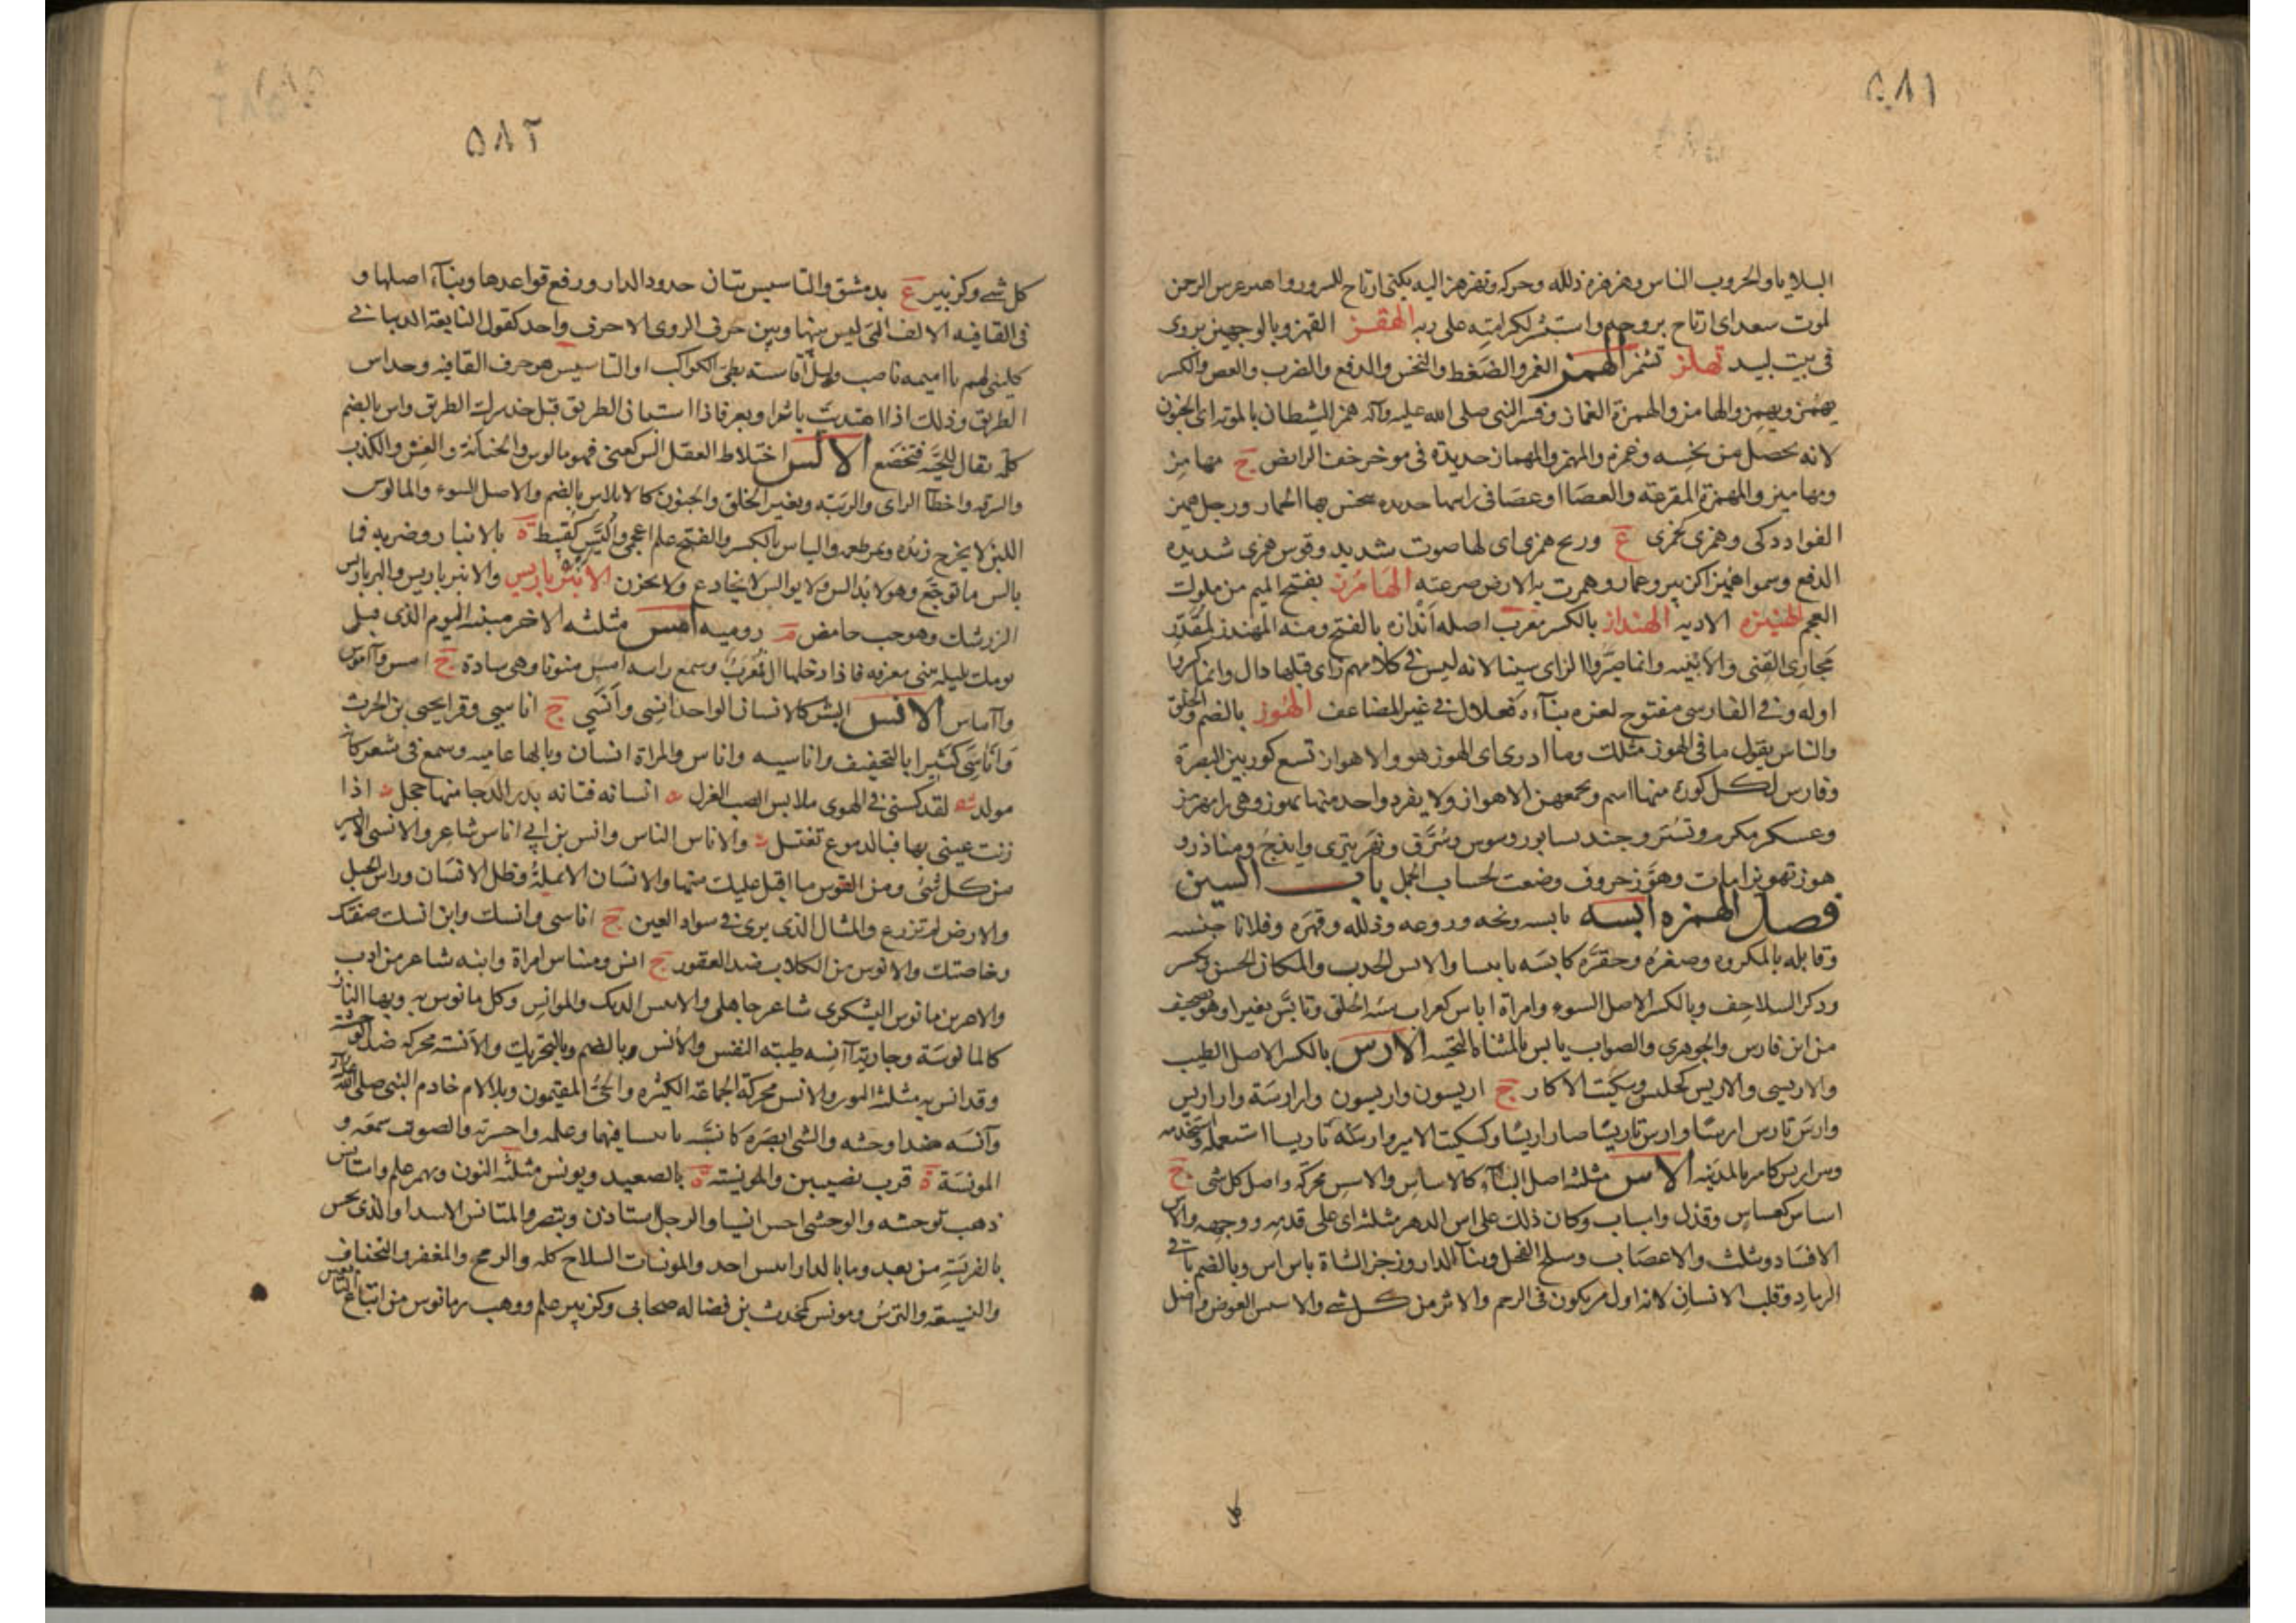 ٥٨١
البلايا والحروب الناس وهزهزه ذلله وحركه وتهزهز اليه قلبى ارتاح للسرور واهتز عرش الرحمن
لموت سعد اى ارتاح بروحه واستبشر لكرامته على ربه الهقز القهز وبالوجهين يروى
فى بيت لبيد تهلز تشمر الهمز الغمز والضغط والنخس والدفع والضرب والعض والكسر
يهمز ويهمز والهامز والهمزة الغماز وفسر النبى صلى الله عليه وآله همز الشيطان بالموتة اى الجنون
لانه يحصل من نخسه وغمزه والمهمز والمهماز حديدة فى موخر خف الرايض ج مهامز
ومهاميز والمهمزة المقرعة والعصا او عصا فى راسها حديده ينخس بها الحمار ورجل هميز
الفواد ذكى وهمزى كجمزى ع وريح همزى اى لها صوت شديد وقوس همزى شديدة
الدفع وسموا هميزا كزبير وعمار وهمزت به الارض صرعته الهامرز بفتح الميم من ملوك
العجم الهنيزه الاذيه الهنداز بالكسر معرب اصله اندازه بالفتح ومنه المهندز لمقدر
مجارى القنى والابنيه وانما صيروا الزاى سينا لانه ليس فى كلامهم زاى قبلها دال وانما كسروا
اوله وفى الفارسى مفتوح لعزه بناء فعلال فى غير المضاعف الهوز بالضم والخلق
والناس يقول ما فى الهوز مثلك وما ادرى اى الهوز هو والاهواز تسع كور بين البصرة
وفارس لكل كورة منها اسم ويجمعهن الاهواز ولا يفرد واحد منها بهوز وهى رامهرمز
وعسكر مكرم وتستر وجندسابور وسوس وسرق ونهر تيرى وايذج ومناذر و
هوز تهويزا مات وهوز حروف وضعت لحساب الجمل باب السين
فصل الهمزه ابسه يابسه ونحه وروعه وذلله وقهره وفلانا حبسه
وقابله بالمكروه وصغره وحقره كابسه تابيسا والابس الجدب والمكان الخشن ويكسر
وذكر السلاحف وبالكسر الاصل السوء وامراة اباس كغراب سيئة الخلق وتابس تغير او هو تصحيف
من ابن فارس والجوهرى والصواب يايس بالمثناة التحتيه الارس بالكسر الاصل الطيب
والاريسى والاريس كجليس وسكيت الاكار ج اريسون واريسون وارارسة وارارس
وارس تارس ارسا وارس تاريسا صار اريسا وكسكيت الامير وارسه تاريسا استعمله واستخدمه
وبير اريس كامير بالمدينه الاس مثلثه اصل البناء كالاساس والاسس محركة واصل كل شى ج
اساس كعساس وقذل واسباب وكان ذلك على اس الدهر مثلثه اى على قدمه ووجهه والاس
الافساد ويثلث والاعضاب وسلح النحل وبناء الدار وزجز الشاة باس اس وبالضم باقى
الرماد وقلب الانسان لانه اول متكون فى الرحم والاثر من كل شى والاسيس العوض واصل
٥٨٢
كل شى وكزبير ع بدمشق والتاسيس بيان حدود الدار ورفع قواعدها وبناء اصلها و
فى القافيه الالف التى ليس بينها وبين حرف الروى الا حرف واحد كقول النابغة الذبيانى
كلينى لهم يا اميمه ناصب وليل اقاسيه بطئ الكواكب او التاسيس هو حرف القافيه وخذ اس
الطريق وذلك اذا اهتديت باثر او بعر فاذا استبان الطريق قيل خذ شرك الطريق واس بالضم
كلمه تقال للحيه فتخضع الالس اختلاط العقل الس كعنى فهو مالوس والخيانة والغش والكذب
والسرقه واخطا الراى والريبه وتغير الخلق والجنون كالالاس بالضم والاصل السوء والمالوس
اللبن لا يخرج زبده ويمر طعمه والياس بالكسر والفتح علم اعجمى واليس كقبيط ة بالانبار وضربه فما
تالس ما توجع وهو لا يدالس ولا يوالس لا يخادع ولا يخون الانبرباريس والانبرباريس والبرباريس
الزرشك وهو حب حامض م روميه امس مثلثه الاخر مبنيه اليوم الذى قبل
يومك بليله يبنى معرفه فاذا دخلها ال فمعرب وسمع رايته امس منونا وهى شاذة ج امس واموس
وآماس الانس البشر كالانسان الواحد انسى وانسى ج اناسى وقرا يحيى بن الحرث
واناسى كثيرا بالتخفيف واناسيه واناس والمراة انسان وبالهاء عاميه وسمع فى شعر كانه
مولد لقد كستنى فى الهوى ملابس الصب الغزل انسانه فتانه بدر الدجا منها خجل اذا
زنت عينى بها فبالدموع تغتسل والاناس الناس وانس بن ابى اناس شاعر والانسى الايسر
من كل شى ومن القوس ما اقبل عليك منها والانسان الانملة وظل الانسان وراس الجبل
والارض لم تزرع والمثال الذى يرى فى سواد العين ج اناسى وانسك وابن انسك صفيك
وخاصتك والانوس من الكلاب ضد العقور ج انس ومئناس امراة وابنه شاعر من ادب
والاهر بن مانوس اليشكرى شاعر جاهلى والانيس الديك والموانس وكل مانوس به وبهاء النار
كالمانوسة وجارية آنسه طيبة النفس والانس وبالضم وبالتحريك والانسة محركه ضد الوحشة
وقد انس به مثلثه النون والانس محركة الجماعة الكثيره والحى المقيمون وبلا لام خادم النبى صلى الله عليه وآله
وآنسه ضد اوحشه والشى ابصره كانسه تانيسا فيهما وعلمه واحس به والصوت سمعه و
المونسة ة قرب نصيبين والمونسيه ة بالصعيد ويونس مثلثه النون ويهمز علم واستانس
ذهب توحشه والوحشى احس انسيا والرجل استاذن وتبصر والمتانس الاسد او الذى يحس
بالفريسة من بعد وما بالدار انيس احد والمونسات السلاح كله والرمح والمغفر والتجفاف
والتسيغه والترس ومونس كمحدث بن فضاله صحابى وكزبير علم ووهب بن مانوس من اتباع التابعين